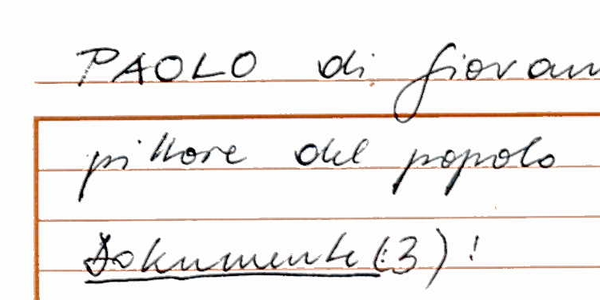 PAOLO di Giovan
pittore del popolo
Dokumente (3) !